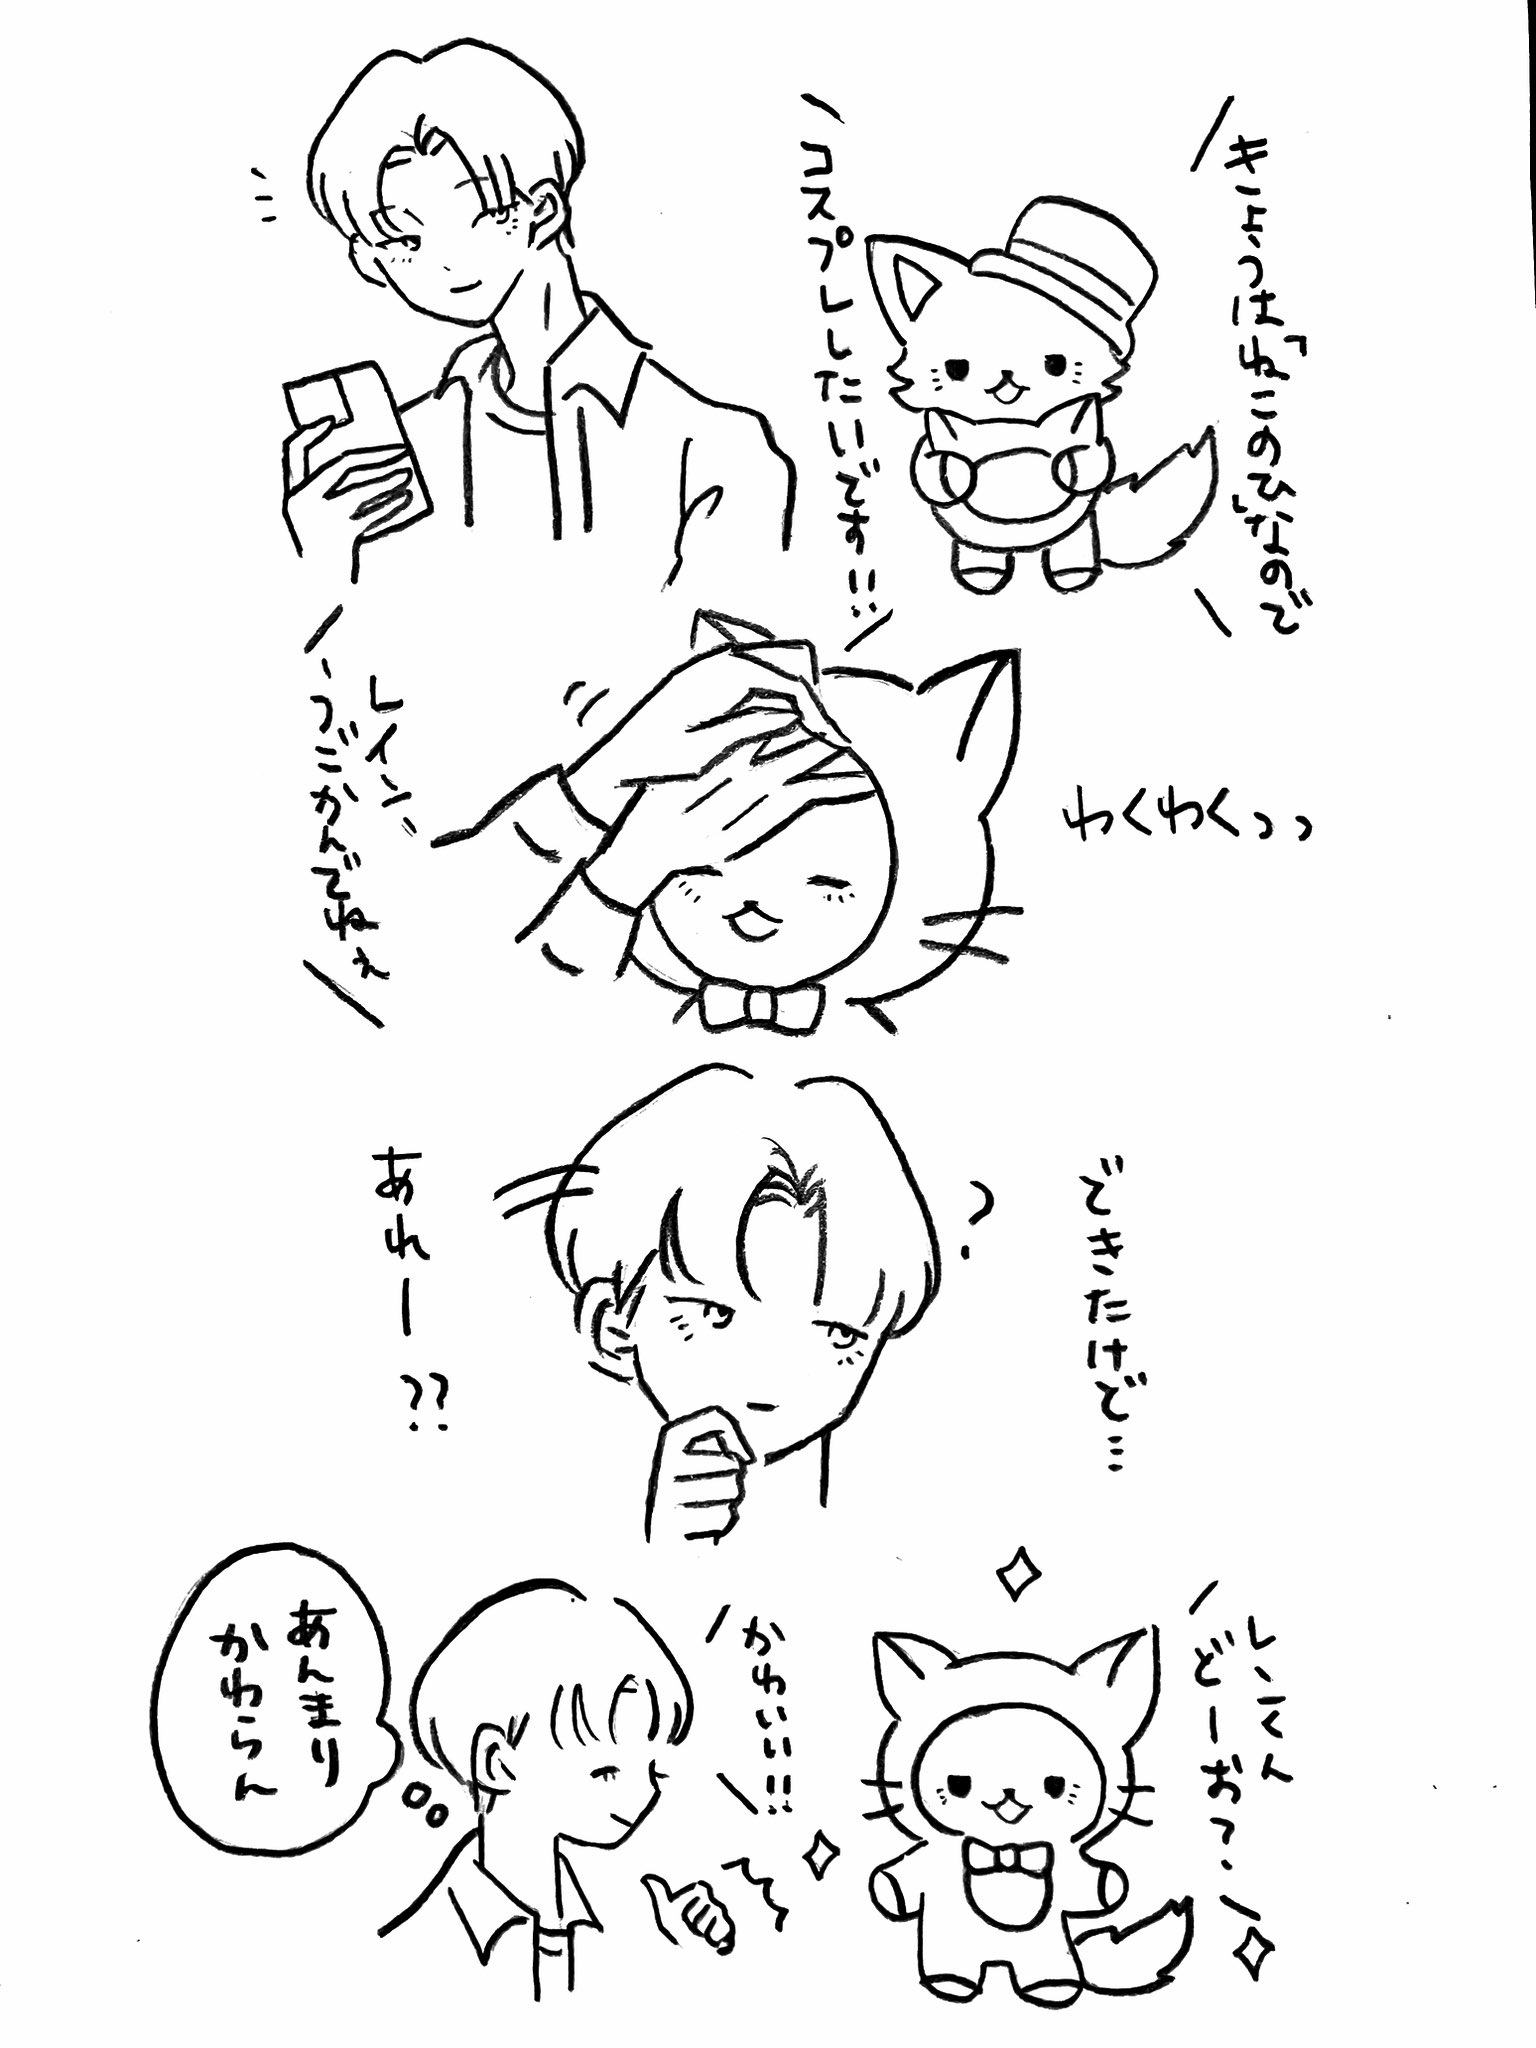 きょうは「ねこのひ」なので
コスプレしたいです!!
わくわくっっ
レイン、
うごかんでねぇ
できたけど…
?
あれー??
しーくん
どーお?
かわいい!!
あんまり
かわらん